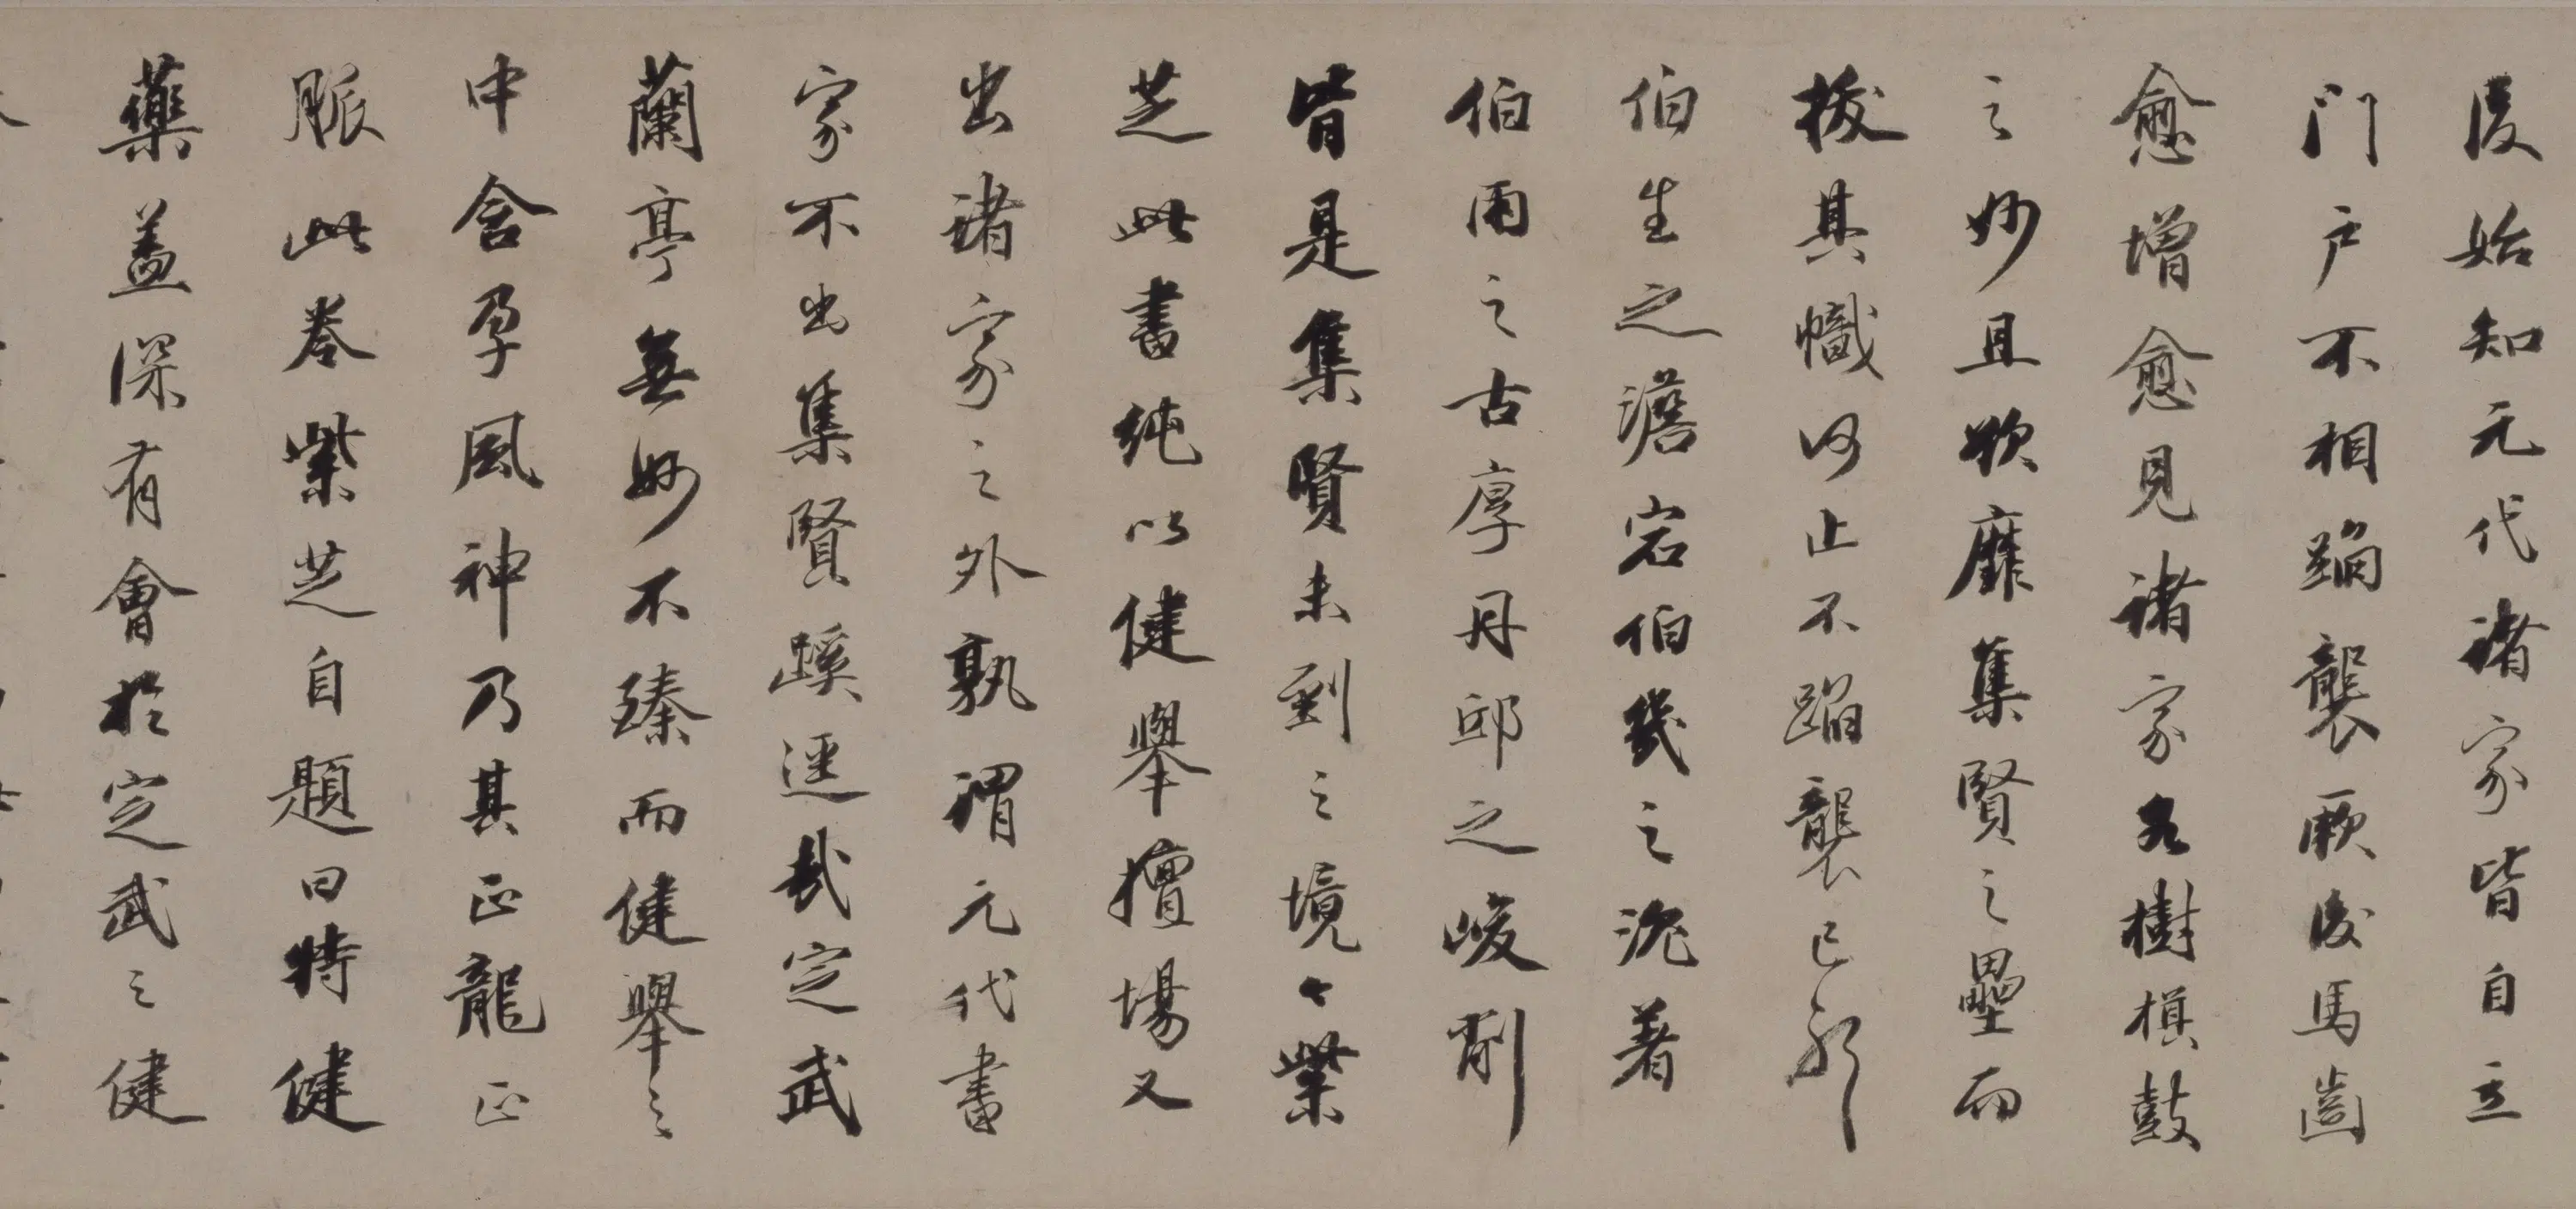 後始知元代諸家皆自立
門戶不相蹈襲厥後馬齒
愈增愈見諸家各樹棋鼓
之妙且欲靡集賢之壘而
拔其幟何止不蹈襲已耶
伯生之澹宕伯幾之沈著
伯雨之古厚丹邱之峻削
皆是集賢未到之境々紫
芝此書純以健舉擅場又
出諸家之外孰謂元代書
家不出集賢蹊逕哉定武
蘭亭無妙不臻而健舉之
中含孕風神乃其正龍正
脈此卷紫芝自題曰特健
藥蓋深有會於定武之健